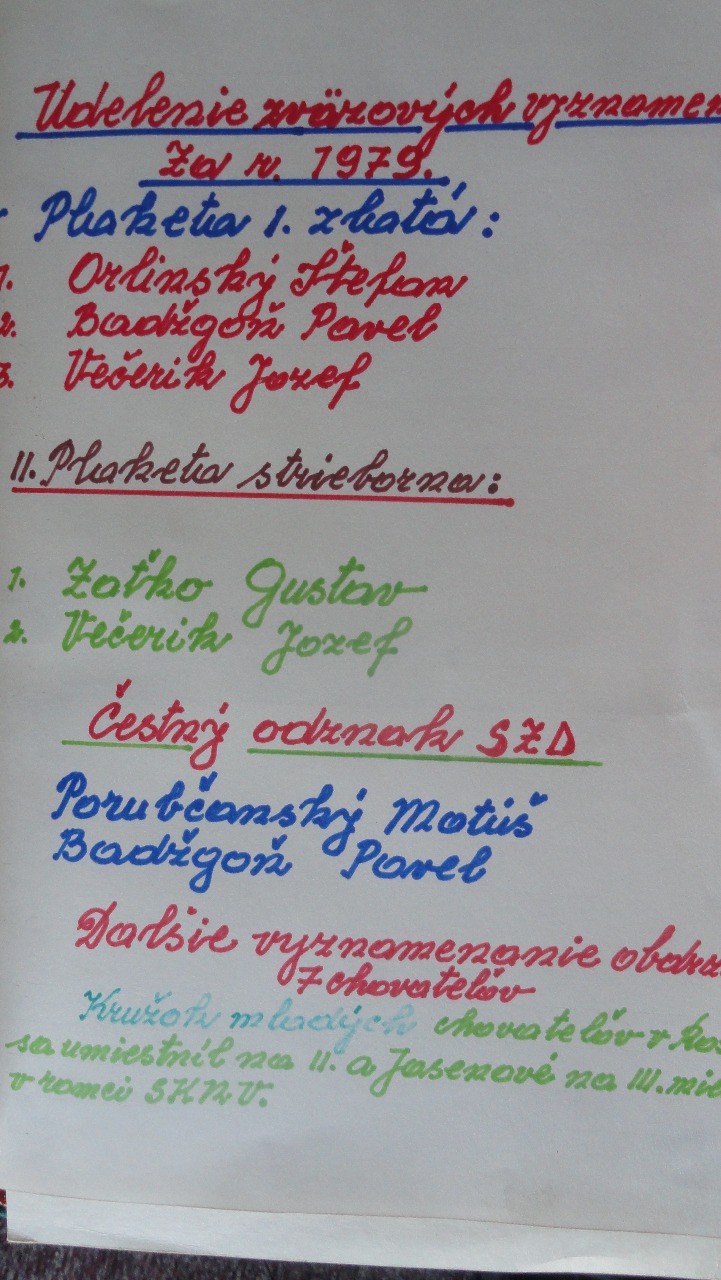 Udelenie zväzových vyznamen
Za r. 1979.
Plaketa I. zlatá:
1. Orlinský Štefan
2. Badžgoň Pavel
3. Večerik Jozef
II. Plaketa strieborna:
1. Zaťko Gustav
2. Večerik Jozef
Čestný odznak SZD
Porubčanský Matúš
Badžgoň Pavel
Dalšie vyznamenanie obdrž
7 chovateľov
Kružok mladých chovateľov v
sa umiestnil na II. a Jasenové na III. mie
v ramci SKNV.